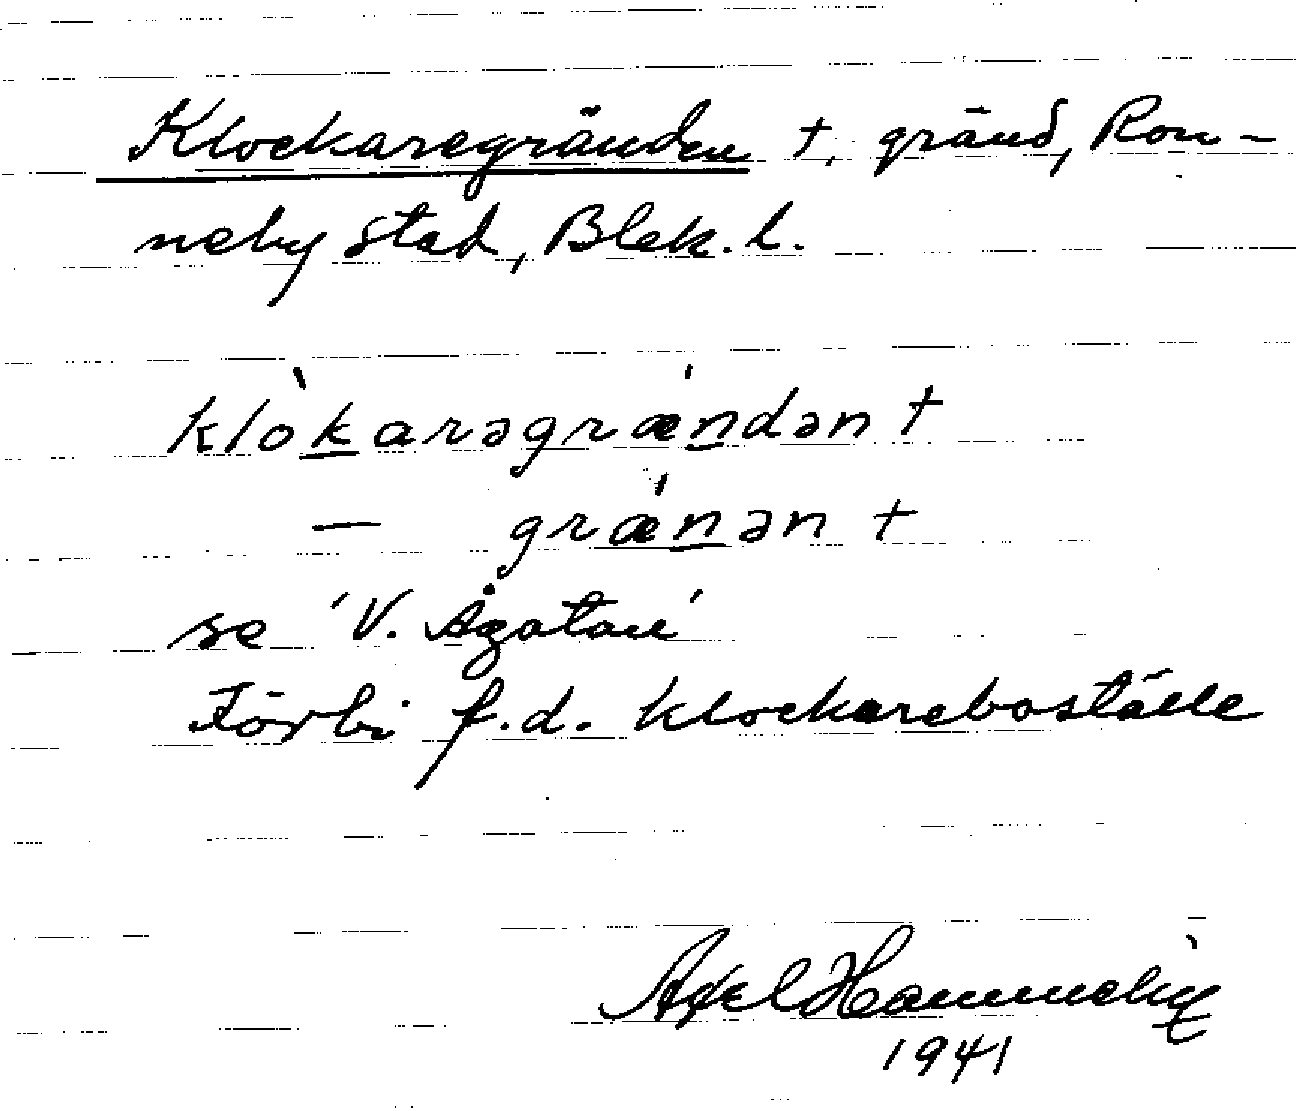 Klockaregränden †, gränd, Ron-
neby stad, Blek. l.
klòkarəgrændən †
— grænən †
se 'V. Ågatan'
Förbi f.d. klockareboställe
Axel Hammeby
1941